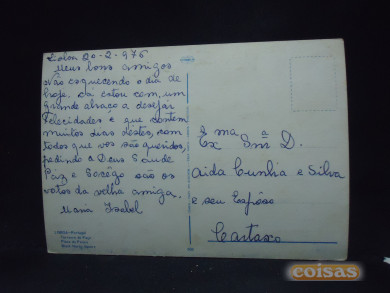 Lisboa 20-2-976
Meus bons amigos
Não esquecendo o dia de
hoje. Cá estou com um
grande abraço a desejar
felicidades e que contem
muitos dias destes, com
todos que vos são queridos,
pedindo a Deus Saúde
Paz e Socêgo são os
votos da velha amiga.
Maria Isabel
LISBOA - Portugal
Exma Sra D.
Aida Cunha e Silva
e seu Espôso
Cartaxo
coisas